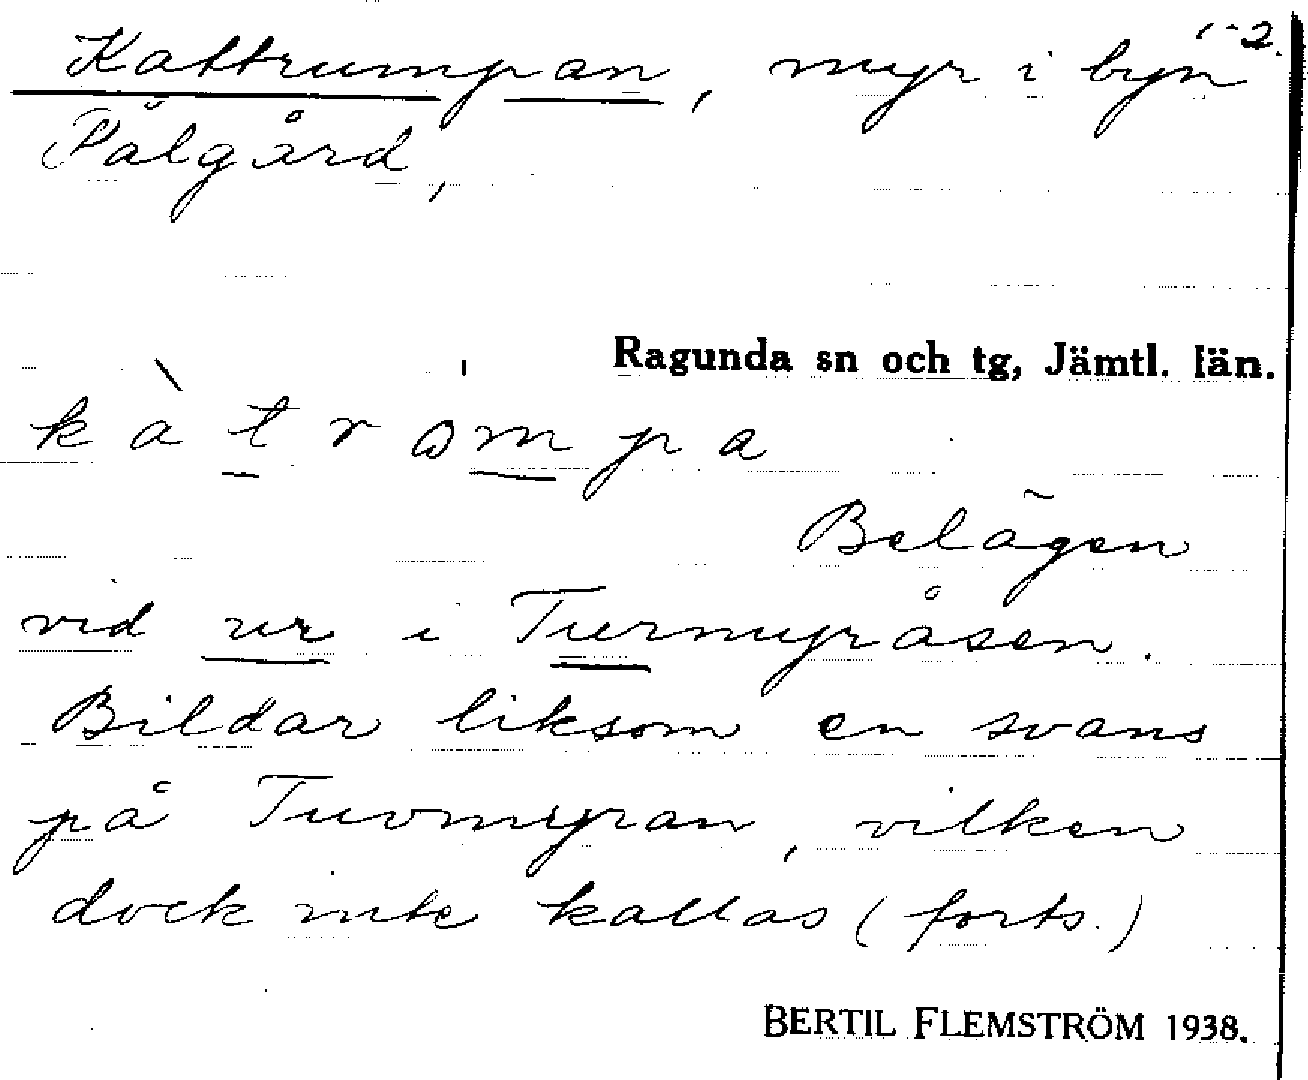 1-2.
Kattrumpan, myr i byn
Pålgård,
Ragunda sn och tg, Jämtl. län.
kàtrømpa
Belägen
vid ur i Turmyråsen.
Bildar liksom en svans
på Tuvmyran, vilken
dock inte kallas (forts.)
BERTIL FLEMSTRÖM 1938.